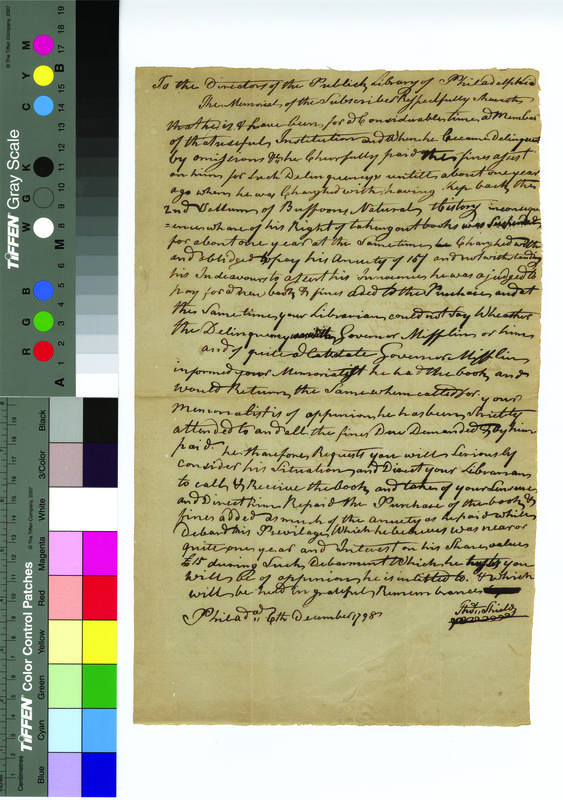 To the Directors of the Publick Library of Philadelphia
The Memorial of the Subscriber Respectfully Sheweth
that he is & have been for a Considerable time a Member
of that usefull Institution and When he became Delinquent
by omissions &c he Chearfully paid the fines assest
on him for Such Delinquencys untill about one year
ago when he was Charghed with having kep back the
2nd Vollum of Buffoons Natural History in consequ
=ence whare of his Right of taking out books was Suspended
for about one year at the Same time Charghed with
and obbliged to pay his Annuety of 15/ and notwithstanding
his Indeavours to assert his Innocence he was ajudged to
pay for a new book & fines aded to the Purchase and at
the Same time your Librarian could not Say Wheather
the Delinquency was Governor Mifflins or himes
and of quite a late date Governor Mifflin
informed your Memorialist he had the book and
would Return the Same when called for. your
Memorialist is of oppinion he has been Strictly
attended to and all the fines Due Demanded & by him
paid. he therefore Requests you will Seriously
consider his Situation and Direct your Librarian
to call & Receive the Book and
and Direct him Repaid the Purchase of the book &
fines added as much of the anuety as he paid while
Debard his Privilage Which he believes was near or
quite one year and Interest on his Share value
£15 during Such Debarment Which he you
will be of oppinion he is entitled to. & Which
will be held in grateful Remembrance
Philada. 6th December 1798
Thos. Shields
TIFFEN Gray Scale
© The Tiffen Company, 2007
R G B W G K C Y M
A 1 2 3 4 5 6 M 8 9 10 11 12 13 14 15 B 17 18 19
TIFFEN Color Control Patches
© The Tiffen Company, 2007
Centimetres
Blue
Cyan
Green
Yellow
Red
Magenta
White
3/Color
Black